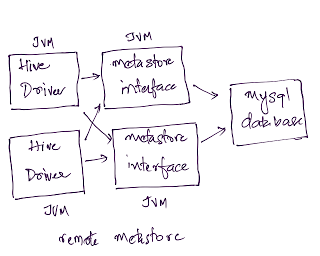 JVM
JVM
Hive
Driver
metastore
interface
Mysql
database
Hive
Driver
metastore
interface
JVM
JVM
remote metastore